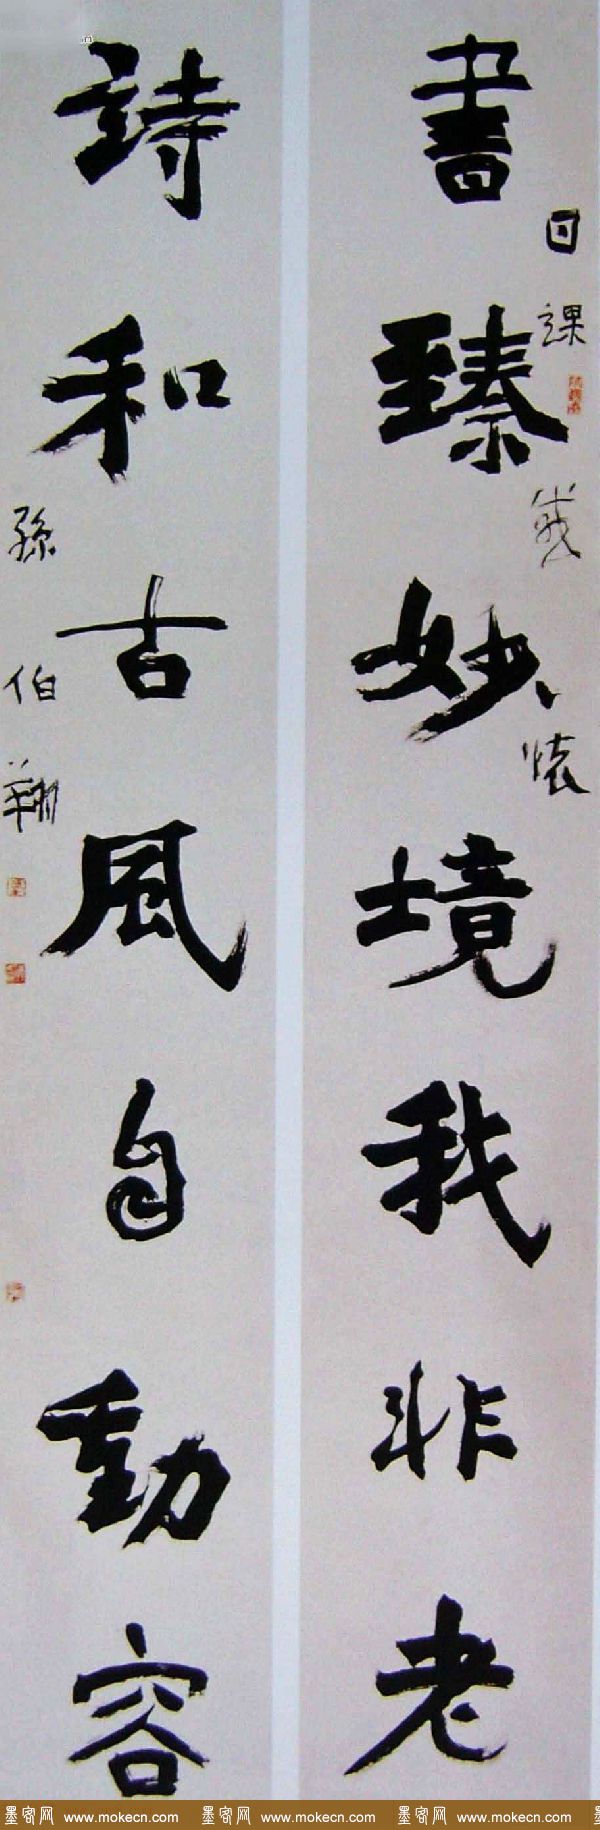 書臻妙境我非老
日課
詩和古風自動容
孫伯翔
墨客网 www.mokecn.com 墨客网 www.mokecn.com 墨客网 www.mokecn.com